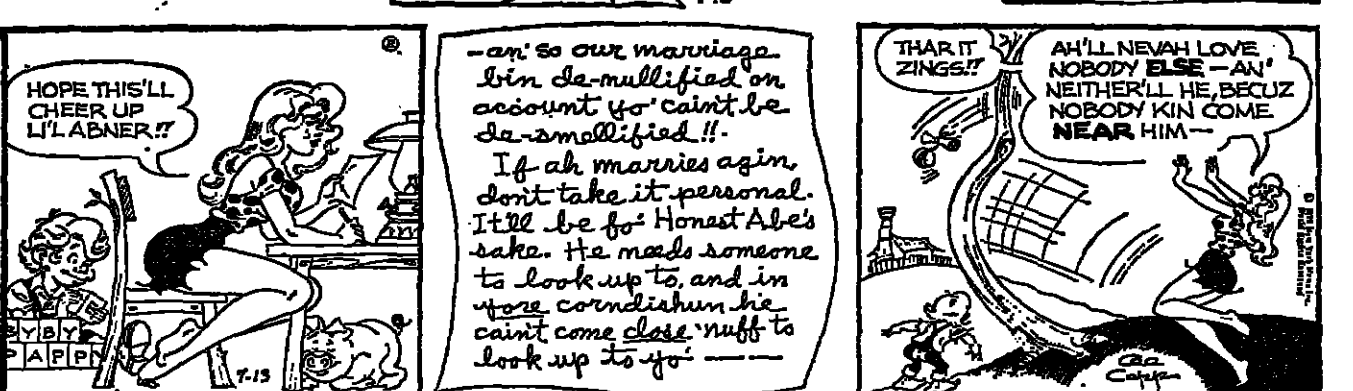 HOPE THIS'LL
CHEER UP
LI'L ABNER!!
YBY
PAPPN
7-13
-an' so our marriage
bin de-nullified on
account yo' cain't be
de-smellified!!.
If ah marries agin,
don't take it personal.
It'll be fo' Honest Abe's
sake. He needs someone
to look up to, and in
yore corndishun he
cain't come close 'nuff to
look up to yo' ——
THAR IT
ZINGS!!
AH'LL NEVAH LOVE
NOBODY ELSE — AN'
NEITHER'LL HE, BECUZ
NOBODY KIN COME
NEAR HIM —
AL
CAPP